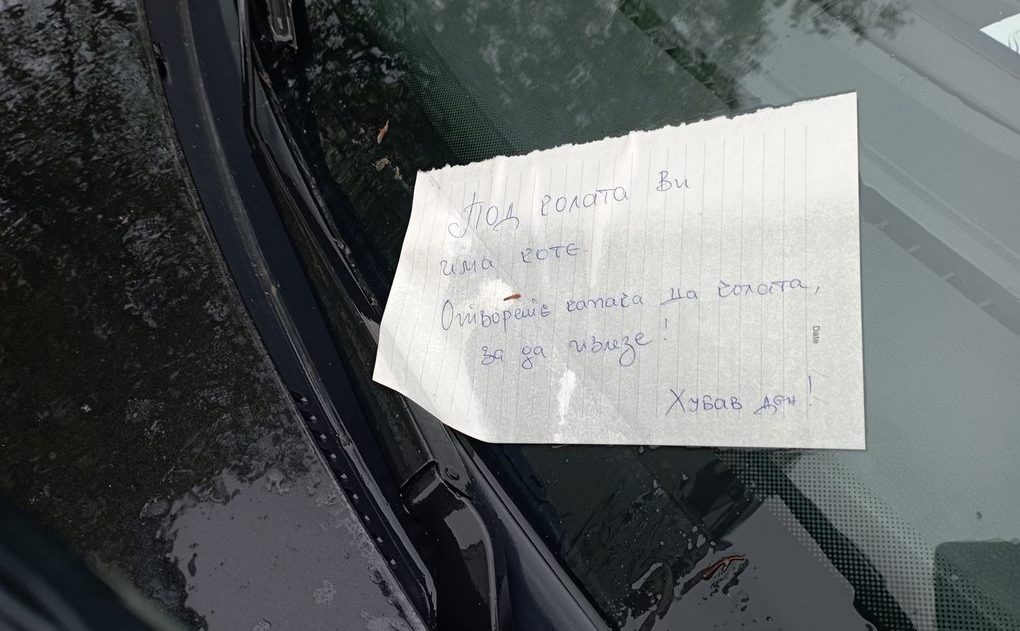 Под колата Ви
има коте.
Отворете капака на колата,
за да излезе!
Хубав ден!
Date